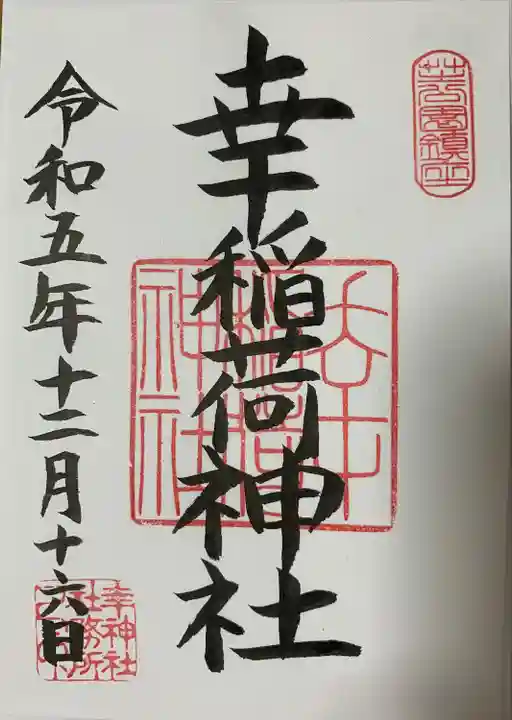 芝公園鎮座
幸稲荷神社
幸
稲荷
神社
令和五年十二月十六日
幸神社
社務所